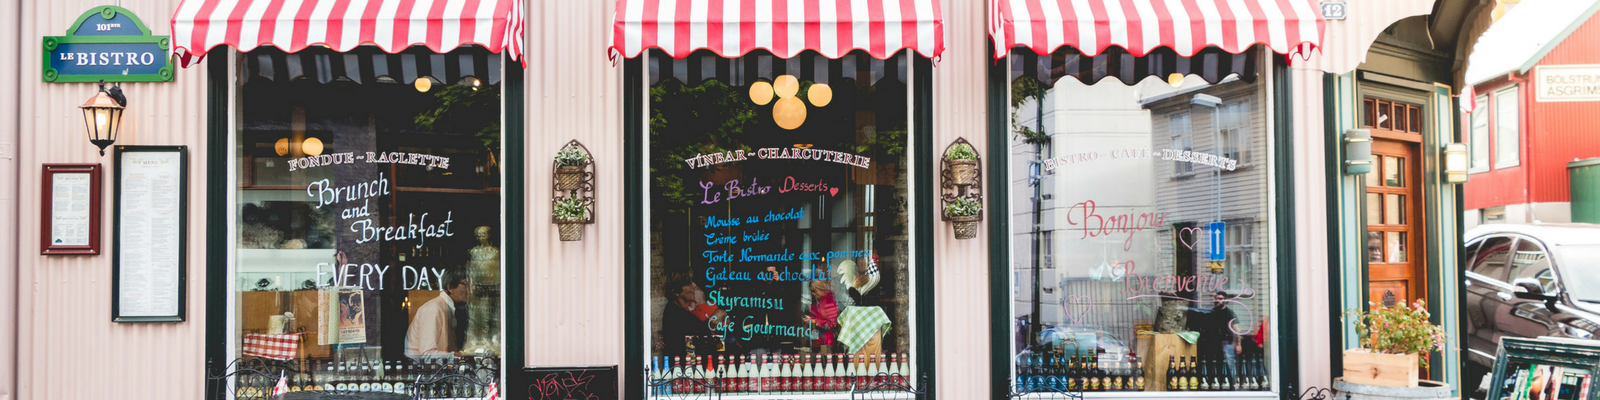 101BTK
LE BISTRO
MENU
FONDUE~RACLETTE
Brunch
and
Breakfast
EVERY DAY
VÍNBAR~CHARCUTERIE
Le Bistro Desserts
Mousse au chocolat
Crème brûlée
Torte Normande aux pommes
Gateau au chocolat
Skyramisu
Café Gourmand
BISTRO~CAFE~DESSERTS
Bonjour
Bienvenue
12